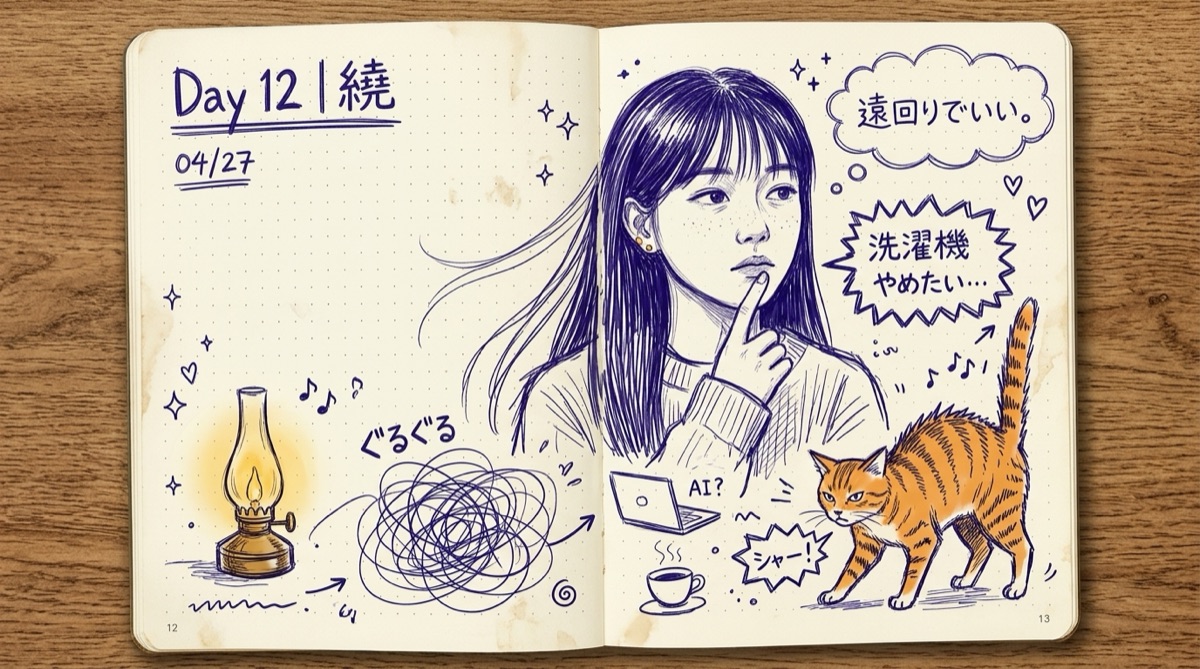 Day 12 | 繞
04/27
ぐるぐる
12
遠回りでいい。
洗濯機
やめたい…
AI?
シャー!
13